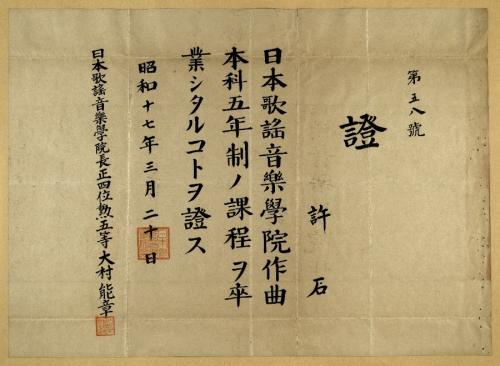 第五八號
證
許石
日本歌謠音樂學院作曲
本科五年制ノ課程ヲ卒
業シタルコトヲ證ス
昭和十七年三月二十日
日本歌謠音樂學院長正四位勲五等大村能章